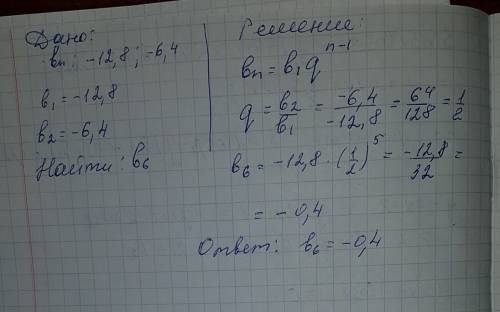 Дано:
bn: -12,8; -6,4
b₁ = -12,8
b₂ = -6,4
Найти: b₆
Решение:
bₙ = b₁qⁿ⁻¹
q = b₂/b₁ = -6,4/-12,8 = 64/128 = 1/2
b₆ = -12,8 · (1/2)⁵ = -12,8/32 =
= -0,4
Ответ: b₆ = -0,4